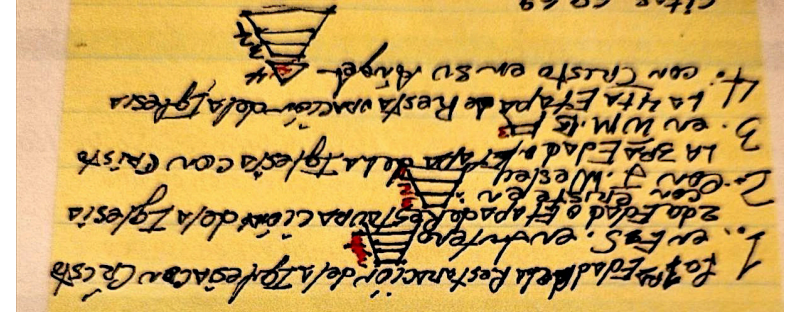 1. La 1RA Edad de la Restauración de la Iglesia con Cristo
en E. S. en Lutero
2da Edad o Etapa de Restauración de la Iglesia
con Cristo en
2. Con J. Wesley
LA 3RA Edad o Etapa de la Iglesia con Cristo
3. en W.M.B
LA 4ta Etapa de Restauración de la Iglesia
4. con Cristo en su Ángel
citas